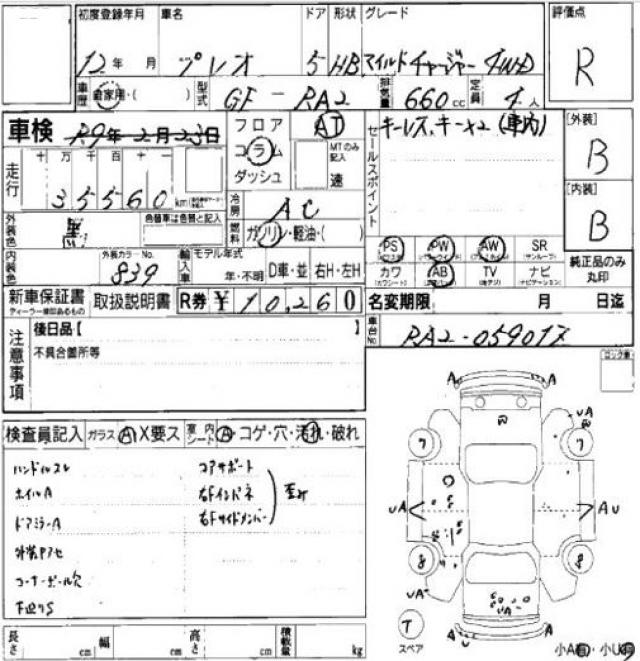 初度登録年月 車名 ドア 形状 グレード 評価点
12年 月 プレオ 5 HB マイルドチャージャー 4WD R
車歴 自家用・( ) 型式 GF-RA2 排気量 660cc 定員 4人
車検 R9年2月23日 フロア AT セールスポイント キーレス、キー×2(車内) [外装]
B
走行 十万千百十一 コラム MTのみ記入
35560km ダッシュ 速
冷房 AC [内装]
B
外装色 黒 色替車は色替と記入 燃料 ガソリン・軽油・( )
PS PW AW SR
内装色 外装カラーNo. 839 輸入車 モデル年式 年・不明 D車・並 右H・左H
カワ AB TV ナビ 純正品のみ丸印
新車保証書 取扱説明書 R券 ¥10,260 名変期限 月 日迄
ディーラー捺印あるもの
車台No. RA2-059017
注意事項 後日品【 】
不具合箇所等
検査員記入 ガラス A X要ス 室内シート A・コゲ・穴・汚れ・破れ
ハンドルスレ コアサポート
ホイルA 右Fインパネ
ドアミラーA 右Fサイドメンバー
コーナーポール穴
下廻りS
A A
W
UA
W
7 7
UA AU
8 8
UA
UA
A U
T
スペア
長さ cm 幅 cm 高さ cm 積載量 kg
小A 小U